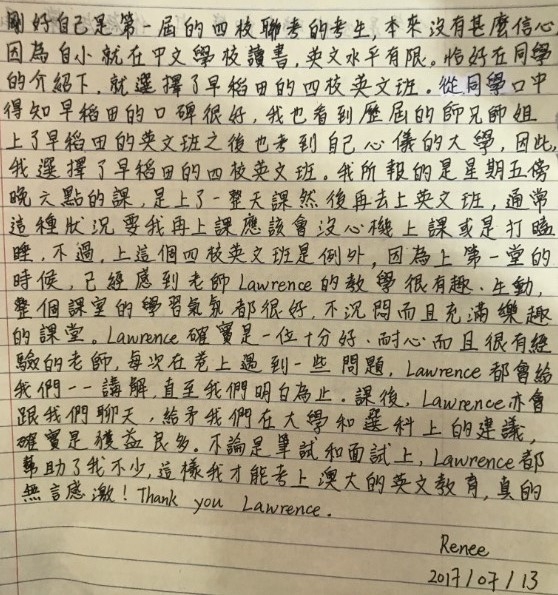 剛好自己是第一屆的四校聯考的考生,本來沒有甚麼信心,
因為自小就在中文學校讀書,英文水平有限。恰好在同學
的介紹下,就選擇了早稻田的四校英文班。從同學口中
得知早稻田的口碑很好,我也看到歷屆的師兄師姐
上了早稻田的英文班之後也考到自己心儀的大學,因此,
我選擇了早稻田的四校英文班。我所報的是星期五傍
晚六點的課,是上了一整天課然後再去上英文班,通常
這種狀況要我再上課應該會沒心機上課或是打瞌
睡,不過,上這個四校英文班是例外,因為上第一堂的
時候,已經感到老師Lawrence的教學很有趣、生動,
整個課室的學習氣氛都很好,不沉悶而且充滿樂趣
的課堂。Lawrence確實是一位十分好、耐心而且很有經
驗的老師,每次在卷上遇到一些問題,Lawrence都會給
我們一一講解,直至我們明白為止。課後,Lawrence亦會
跟我們聊天,給予我們在大學和選科上的建議,
確實是獲益良多。不論是筆試和面試上,Lawrence都
幫助了我不少,這樣我才能考上澳大的英文教育,真的
無言感激!Thank you Lawrence.
Renee
2017/07/13